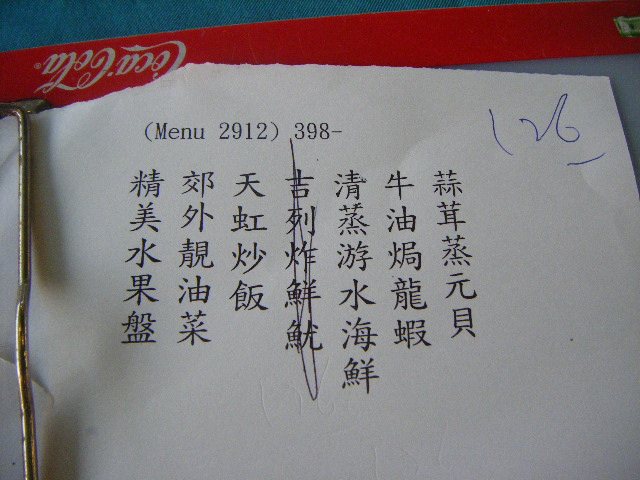 Coca-Cola
(Menu 2912) 398-
126
蒜茸蒸元貝
牛油焗龍蝦
清蒸游水海鮮
吉列炸鮮魷
天虹炒飯
郊外靚油菜
精美水果盤